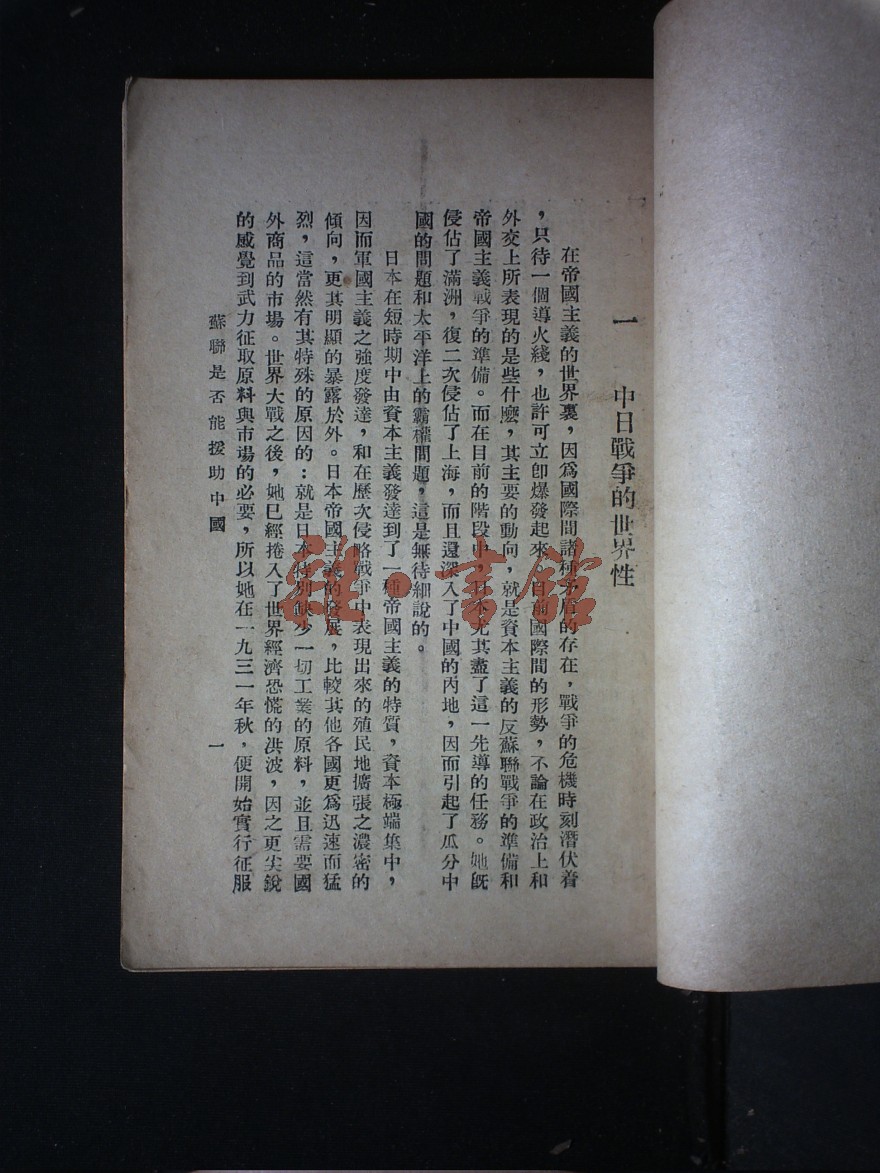 一 中日戰爭的世界性
在帝國主義的世界裏，因爲國際間諸種矛盾的存在，戰爭的危機時刻潛伏着
，只待一個導火綫，也許可立卽爆發起來。目前國際間的形勢，不論在政治上和
外交上所表現的是些什麽，其主要的動向，就是資本主義的反蘇聯戰爭的準備和
帝國主義戰爭的準備。而在目前的階段中，日本尤其盡了這一先導的任務。她旣
侵佔了滿洲，復二次侵佔了上海，而且還深入了中國的內地，因而引起了瓜分中
國的問題和太平洋上的霸權問題，這是無待細說的。
日本在短時期中由資本主義發達到了一種帝國主義的特質，資本極端集中，
因而軍國主義之強度發達，和在歷次侵略戰爭中表現出來的殖民地擴張之濃密的
傾向，更其明顯的暴露於外。日本帝國主義的發展，比較其他各國更爲迅速而猛
烈，這當然有其特殊的原因的：就是日本特別缺少一切工業的原料，並且需要國
外商品的市場。世界大戰之後，她已經捲入了世界經濟恐慌的洪波，因之更尖銳
的感覺到武力征取原料與市場的必要，所以她在一九三一年秋，便開始實行征服
蘇聯是否能援助中國 一
雜·書館